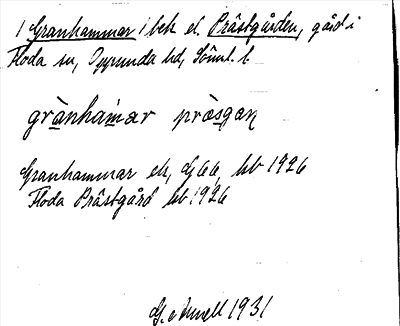 1 Granhammar i bet. el. Prästgården, gård i
Floda sn, Oppunda hd, Söml. l.
grànhamar pròsgan
Granhammar ek, G66, kb 1926
Floda Prästgård kb 1926
1931